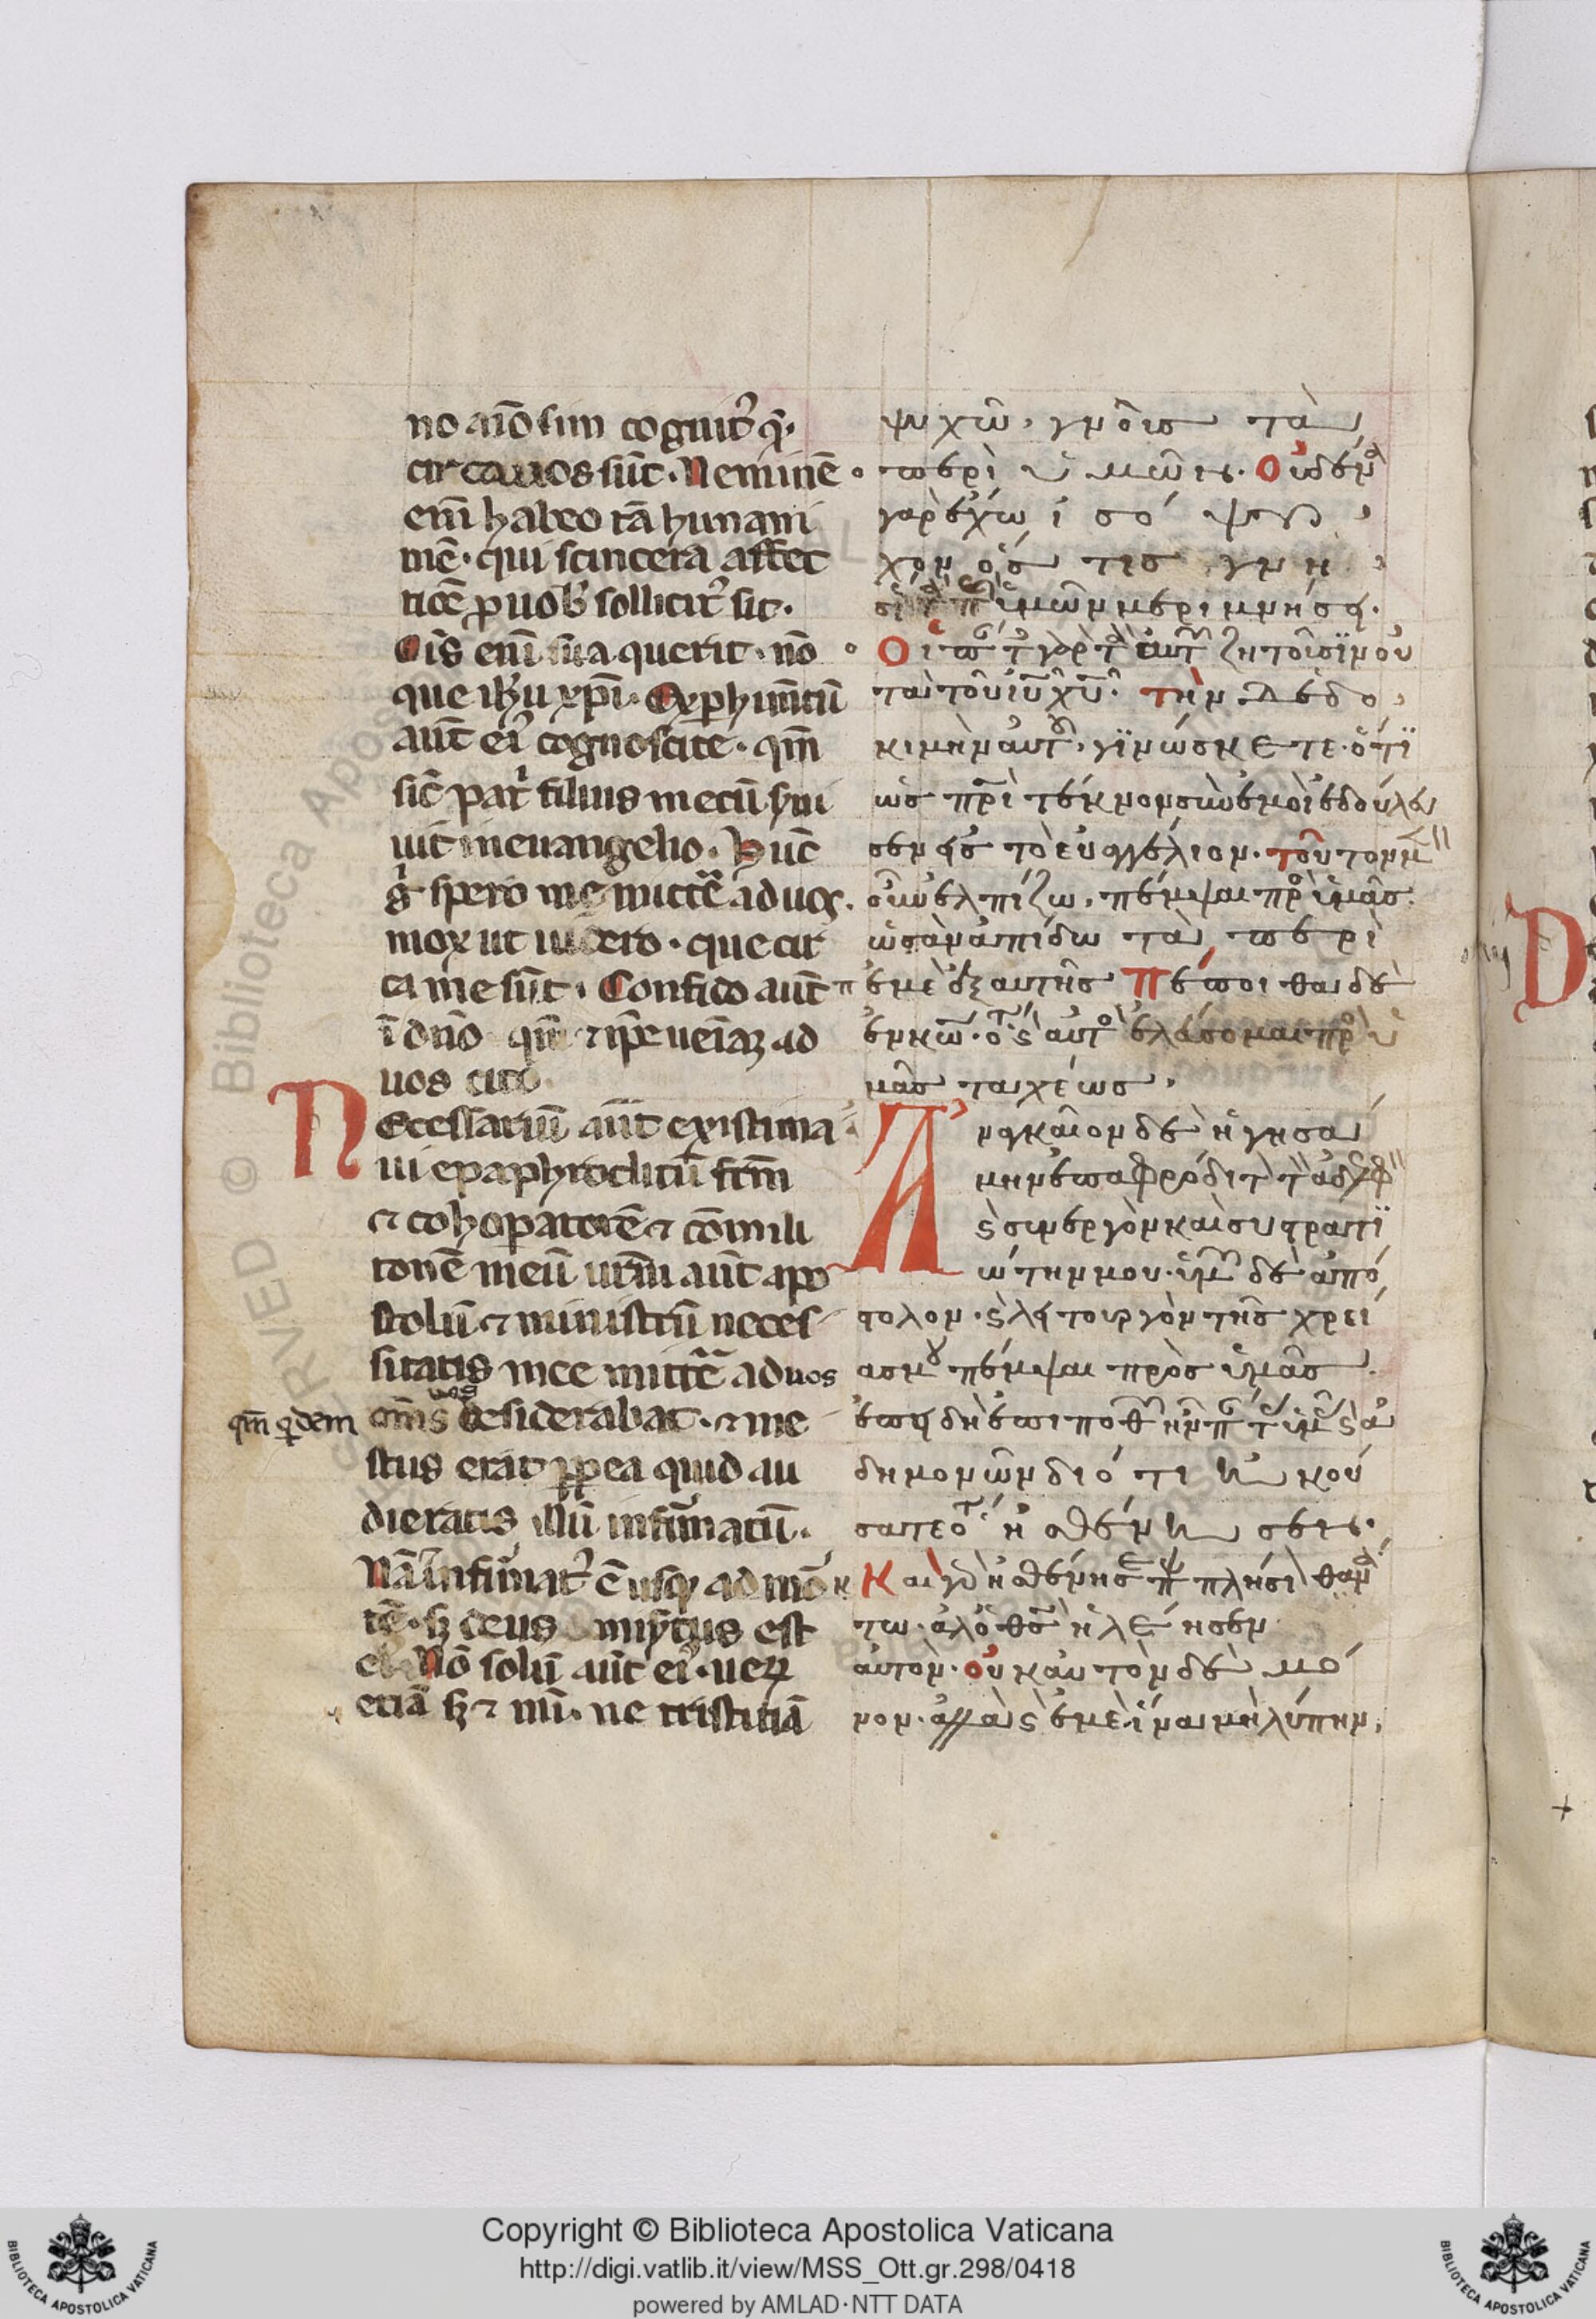 no aīo sim cognit̉ q̄.
circa uos sūt. Neminē
enī habeo tā hunani
mē. qui scincera affec
tiōē ꝓ uob̉ sollicit̉ sit.
Oīs enī sua querit. nō
que ih̄u xp̄i. Experimtū
aūt eỉ cognoscite. qm̄
sic̄ patͥ filius mecū ẜui
uit in euangelio. Hūc
gͥ spero me mittē̉ ad uos.
mox ut uidero. que cir
ca me sūt. Confido aūt
ī dn̄o qm̄ ⁊ ip̄e ueiaꝫ ad
uos cito.
Necessariū aūt existima
ui epaphroditū fr̄m
⁊ cohopatorē ⁊ cōmili
tonē meū ur̄m aūt apo
stolū ⁊ ministrū neces
sitatis mee mittē̉ ad uos
qm̄ qͥdem om̄s uos desiderabat. ⁊ me
stus erat ꝓpea quid au
dieratis illū infirmatū.
Nā infirmat̉ ē usqꝫ ad mor
tē. sꝫ deus misertus est
ei. Nō solū aūt eỉ. ueꝝ
etiā sꝫ ⁊ mī. ne tristitiā
ψυχῶ, γνοὺς τὰ
περὶ ὑμῶν. Οὐδέν̄α
γὰρ ἔχω ἰσόψυ
χον ὅστις γνη
σί̄ τ̀ π̄ ὑμῶν μεριμνήσει.
Οἱ π̄τ̄ γὰρ τ̀ ἑαυτ̄ ζητοῦσϊν οὐ
τὰ τοῦ ιῡ χῡ. τὴν δὲ δο
κιμὴν αὐτ̄, γϊνώσκετε. ὅτϊ
ὡς πρ̄ὶ τέκνον σὺν ἐμοὶ ἐδούλευ
σεν εἰς τὸ εὐαγγέλιον. τοῦτον μ̄
οὖν ἐλπίζω, πέμψαι πρὸ ὑμᾶς.
ὡς ἂν ἀπίδω τὰ περὶ
ἐμὲ ἐξαυτῆς Πέποιθα δὲ
ἐν κω̄. ὅτ̄ ϛ αὐτὸ ἐλεύσομαι πρὸ ὑ
μᾶς ταχέως.
Ἀναγκαῖον δὲ ἡγησά
μην ἐπαφρόδιτ τ̀ ἀδελφ
ϛ̀ συνεργὸν καὶ συστρατϊ
ώτην μου. ὑμ̄ δὲ ἀπό
στολον. ϛ̀ λειτουργὸν τῆς χρεί
ας μȣ πέμψαι πρὸς ὑμᾶς.
ἐπειδὴ ἐπιποθ̄ ἦν π̄τ̄ ὑμ̄ ϛ̀ ἀ
δημονῶν διότι ἠκού
σατε ὅτ̄ι ἠσθένησεν.
Καὶ γὰρ ἠσθένησε π̄ πλησί θαν̄ά
τω. ἀλ̓ ὁ θσ̄ ἠλέησεν
αὐτὸν. οὐκ αὐτὸν δὲ μό
νον. ἀλλὰ ϛ̀ ἐμὲ ἵνα μὴ λύπην,
D
Copyright © Biblioteca Apostolica Vaticana
http://digi.vatlib.it/view/MSS_Ott.gr.298/0418
powered by AMLAD·NTT DATA